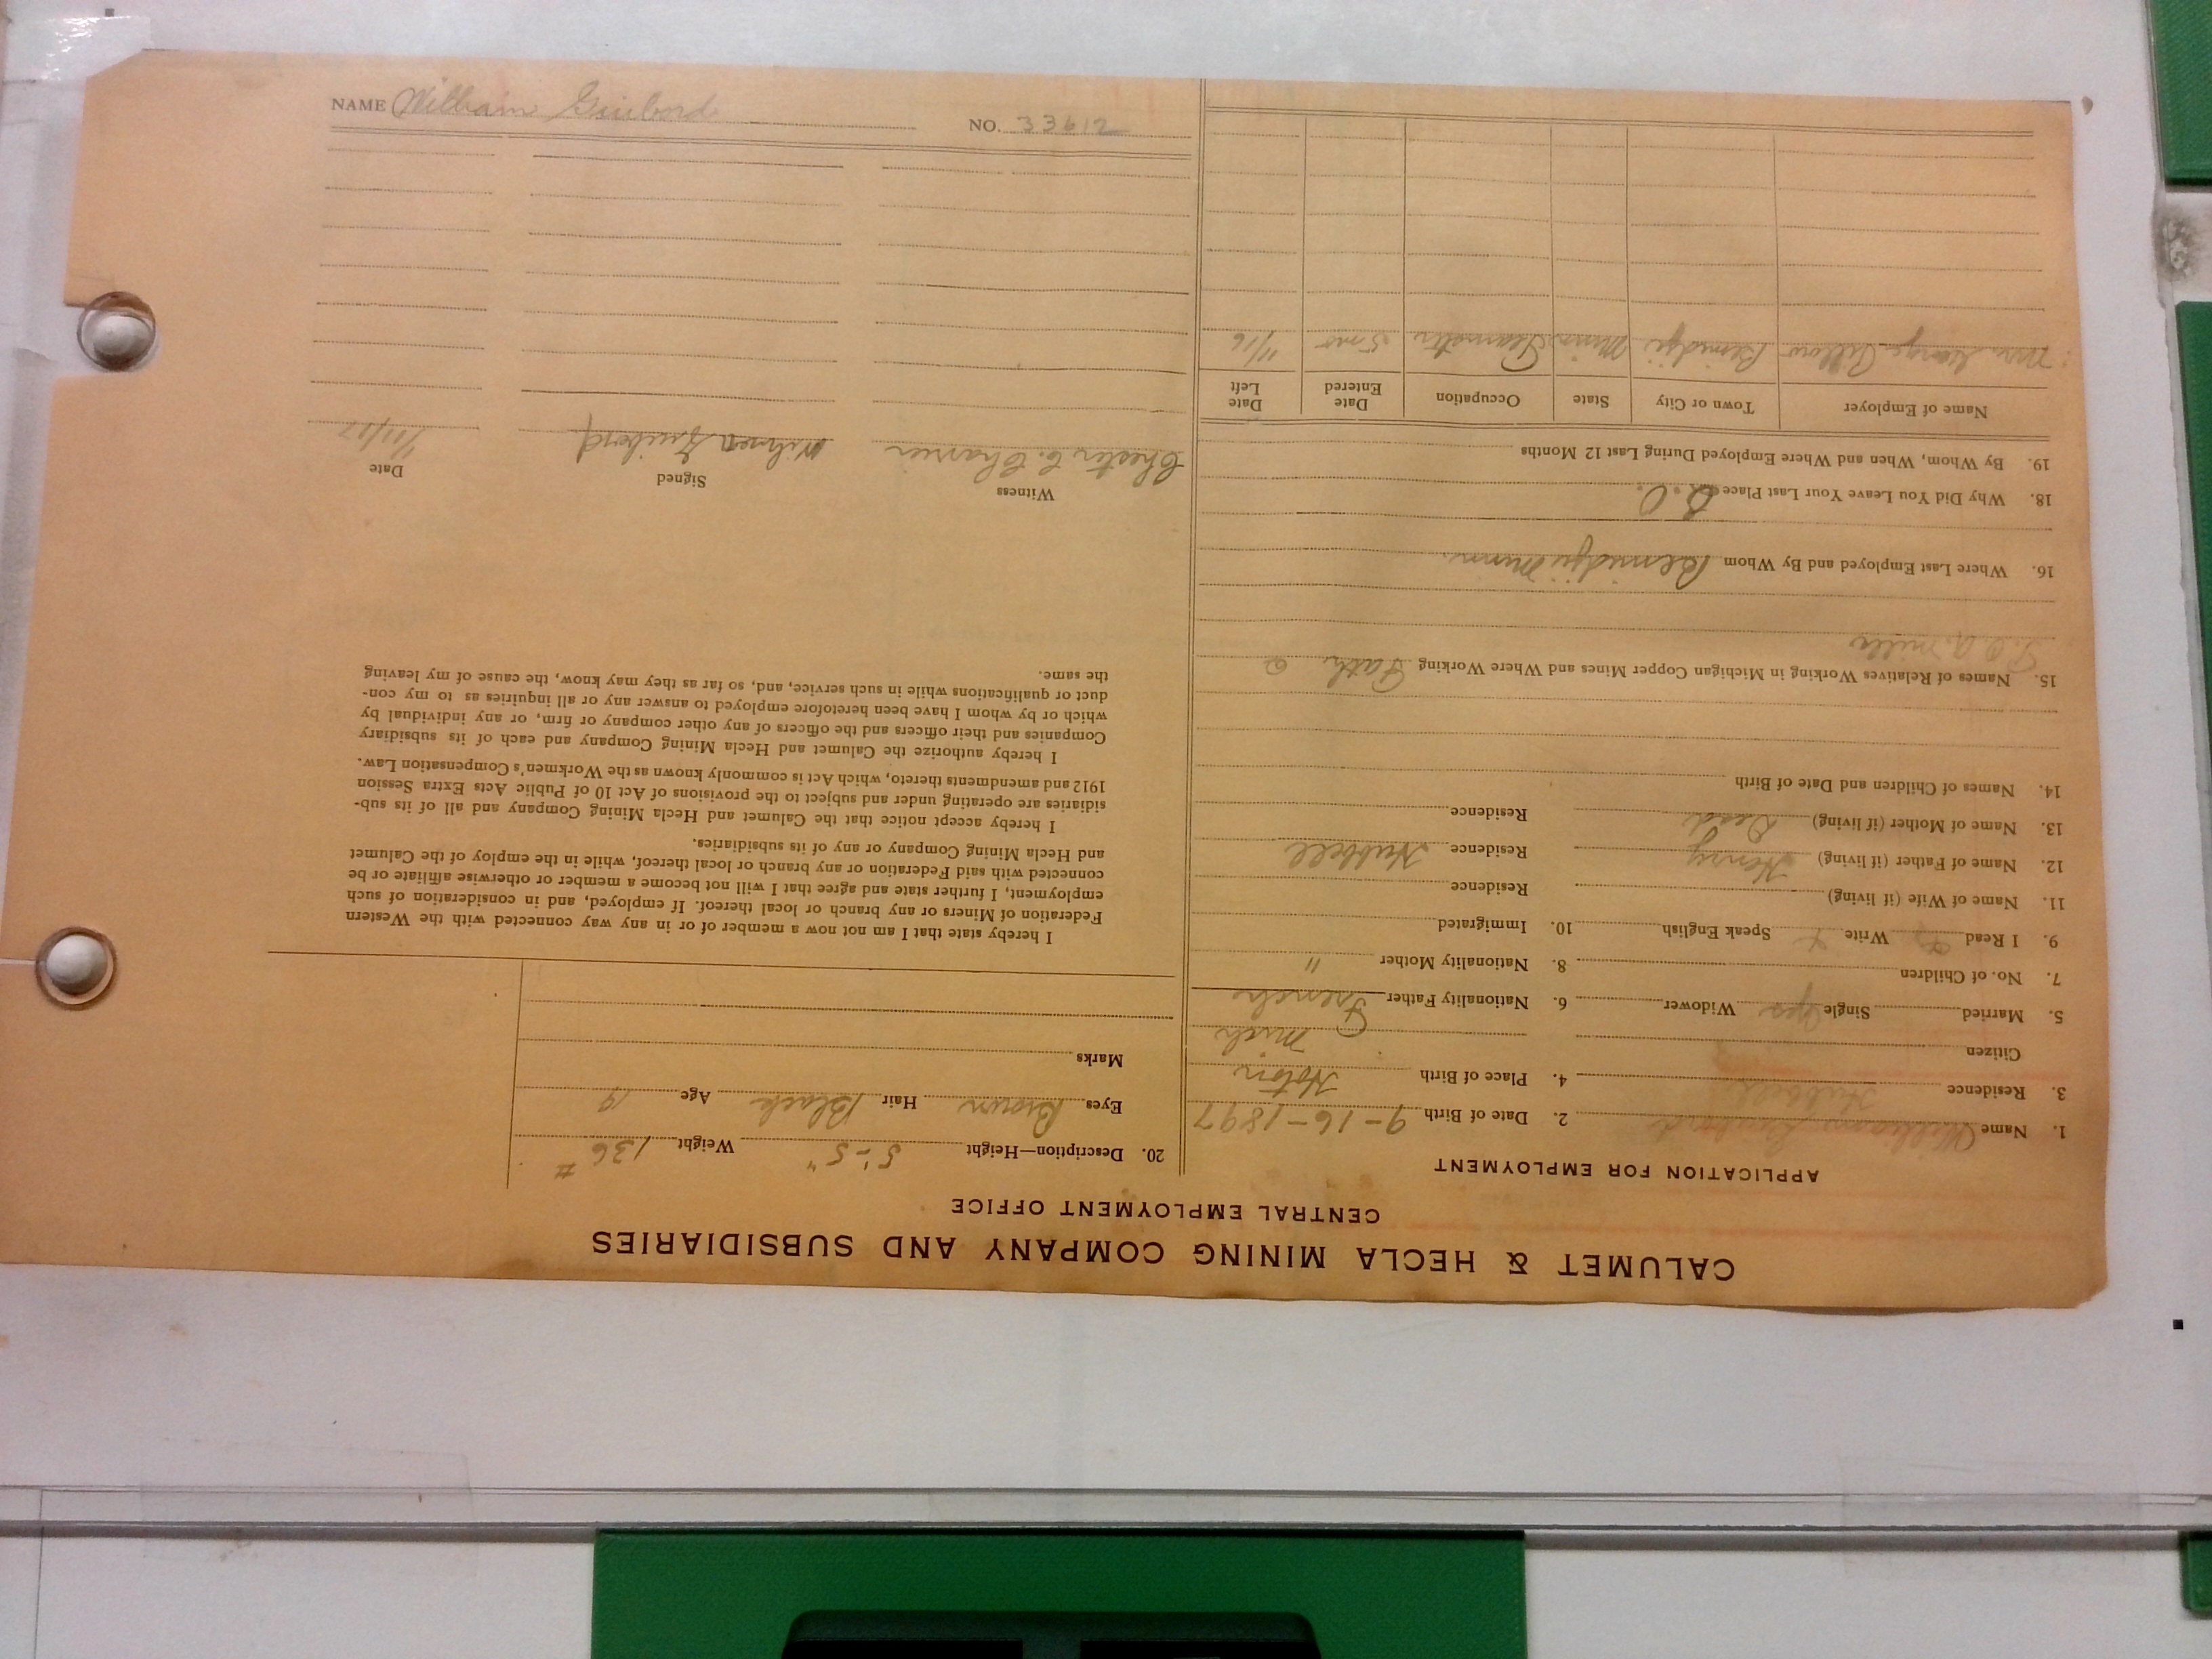 CALUMET & HECLA MINING COMPANY AND SUBSIDIARIES
CENTRAL EMPLOYMENT OFFICE
APPLICATION FOR EMPLOYMENT
1. Name William Guibord 2. Date of Birth 9-16-1897
3. Residence Hubbell 4. Place of Birth
Citizen Mich
5. Married Single yes Widower 6. Nationality Father French
7. No. of Children 8. Nationality Mother "
9. I Read Write Speak English 10. Immigrated
11. Name of Wife (if living) Residence
12. Name of Father (if living) Henry Residence Hubbell
13. Name of Mother (if living) Dead Residence
14. Names of Children and Date of Birth
15. Names of Relatives Working in Michigan Copper Mines and Where Working Fath
mills
16. Where Last Employed and By Whom Bemidji Minn.
18. Why Did You Leave Your Last Place
19. By Whom, When and Where Employed During Last 12 Months
Name of Employer Town or City State Occupation Date Entered Date Left
George Bemidji Minn Teamster 5 mo 11/16
20. Description—Height 5'-5" Weight 136 #
Eyes Brown Hair Black Age 19
Marks
I hereby state that I am not now a member of or in any way connected with the Western
Federation of Miners or any branch or local thereof. If employed, and in consideration of such
employment, I further state and agree that I will not become a member or otherwise affiliate or be
connected with said Federation or any branch or local thereof, while in the employ of the Calumet
and Hecla Mining Company or any of its subsidiaries.
I hereby accept notice that the Calumet and Hecla Mining Company and all of its sub-
sidiaries are operating under and subject to the provisions of Act 10 of Public Acts Extra Session
1912 and amendments thereto, which Act is commonly known as the Workmen's Compensation Law.
I hereby authorize the Calumet and Hecla Mining Company and each of its subsidiary
Companies and their officers and the officers of any other company or firm, or any individual by
which or by whom I have been heretofore employed to answer any or all inquiries as to my con-
duct or qualifications while in such service, and, so far as they may know, the cause of my leaving
the same.
Witness Signed Date
Chester C. Guibord 1/11/17
NAME William Guibord NO. 33612